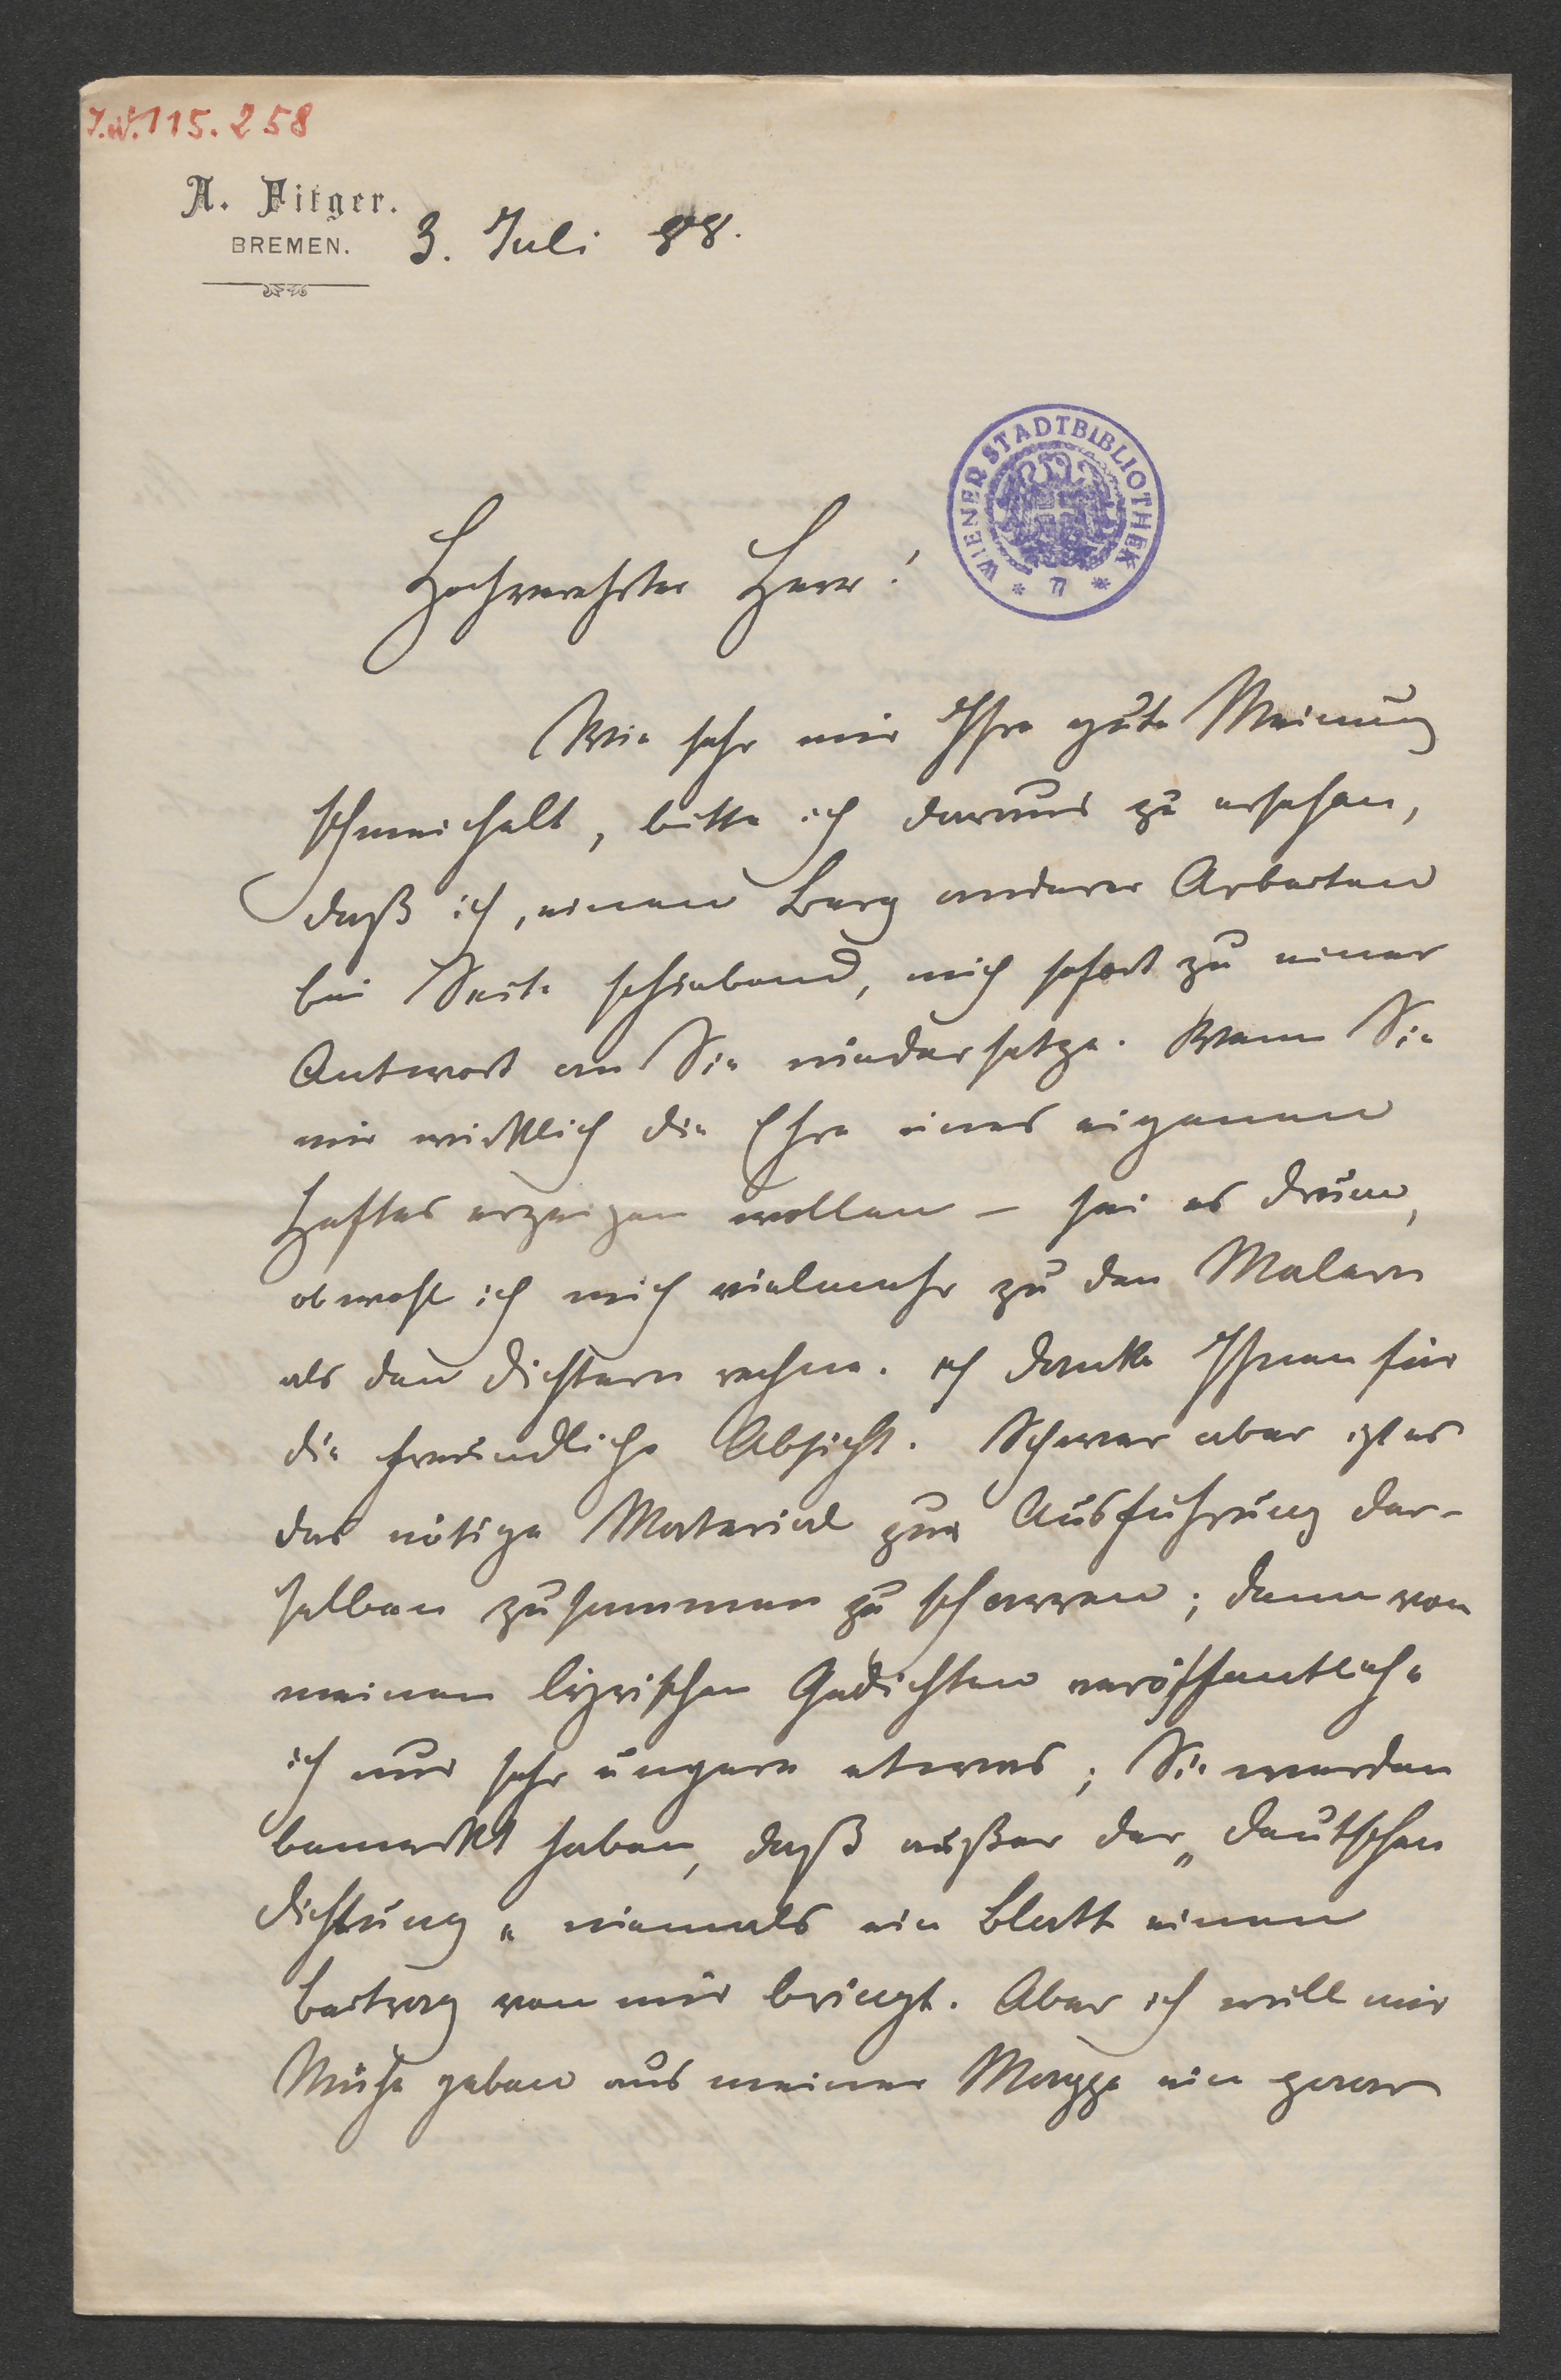 I.N. 115.258
A. Fitger.
BREMEN.
3. Juli 88.
WIENER STADTBIBLIOTHEK
Hochverehrter Herr!
Wie sehr mir Ihre gute Meinung
schmeichelt, bitte ich daraus zu ersehen,
daß ich, einen Berg anderer Arbeiten
bei Seite schiebend, mich sofort zu einer
Antwort an Sie niedersetze. Wenn Sie
mir wirklich die Ehre eines eigenen
Heftes erzeigen wollen – sei es drum,
obwohl ich mich vielmehr zu den Malern
als den Dichtern rechne. ich danke Ihnen für
die freundliche Absicht. Schwer aber ist es
das nötige Material zur Ausführung der-
selben zusammen zu scharren; denn von
meinen lyrischen Gedichten veröffentliche
ich nur sehr ungern etwas; Sie werden
bemerkt haben, daß außer der „Deutschen
Dichtung" niemals ein Blatt einen
Beitrag von mir bringt. Aber ich will mir
Mühe geben aus meiner Mappe ein paar